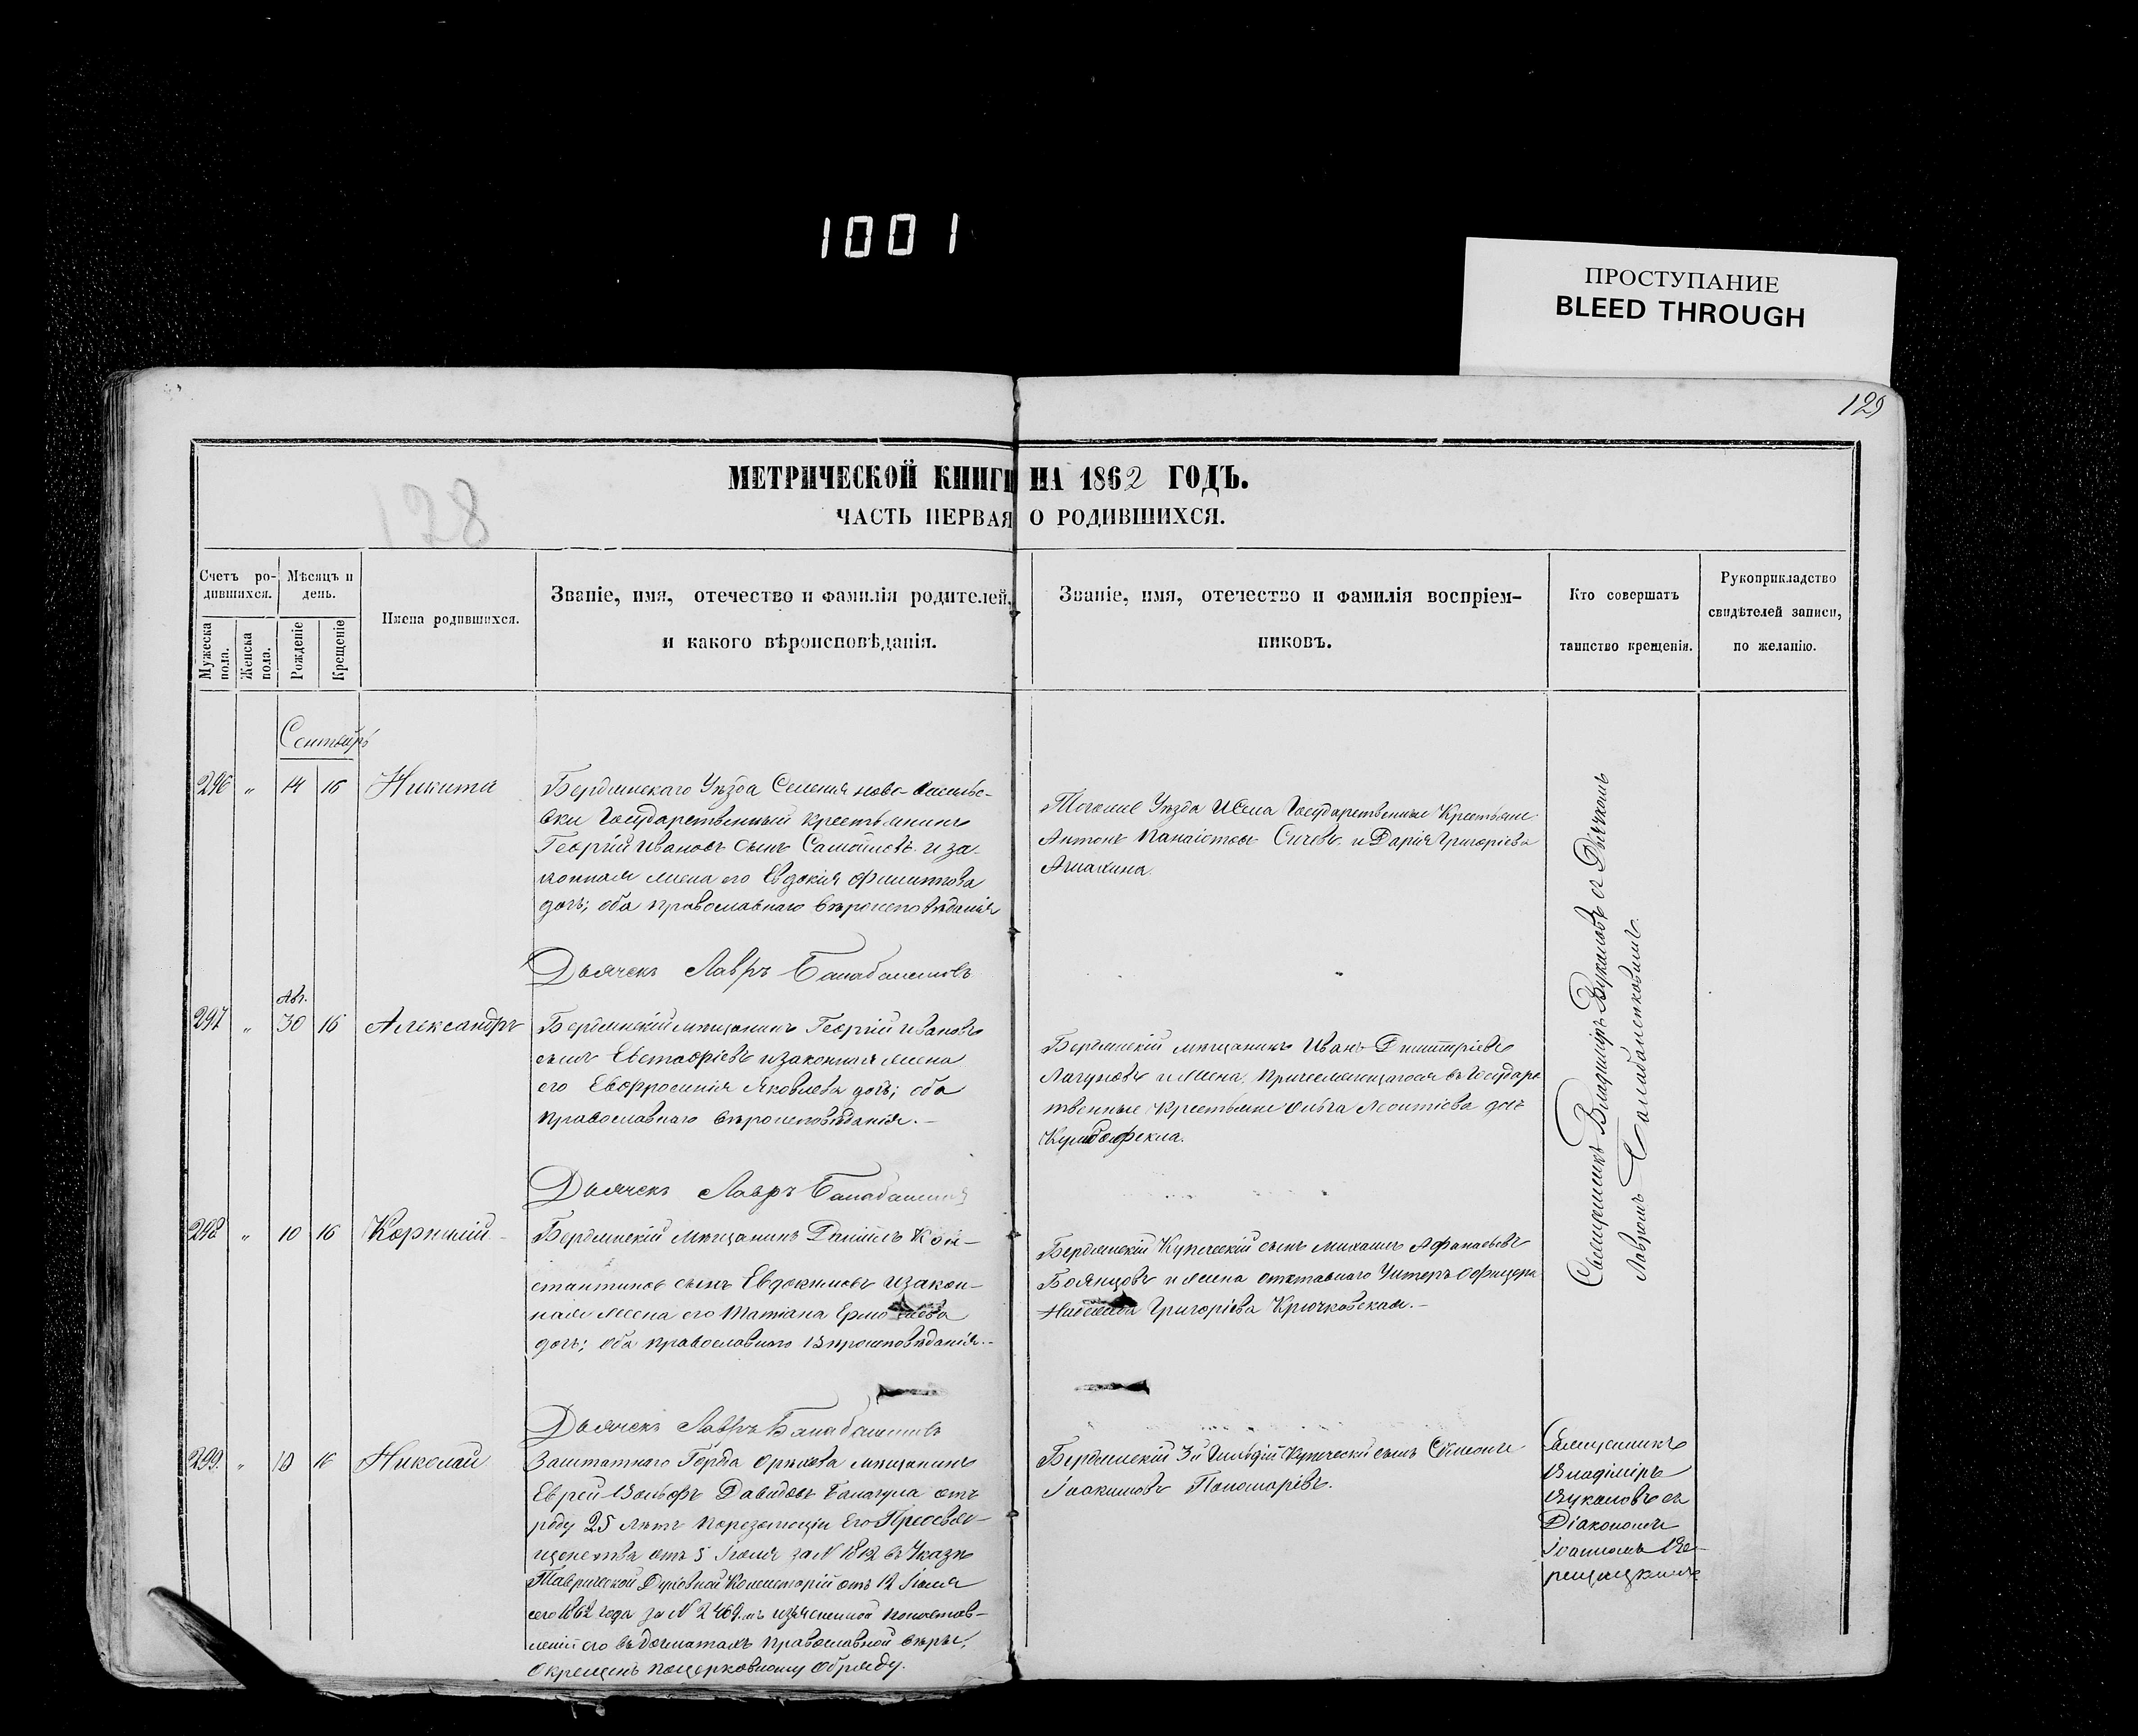 1001
ПРОСТУПАНИЕ
BLEED THROUGH
129
128
МЕТРИЧЕСКОЙ КНИГИ НА 1862 ГОДЪ.
ЧАСТЬ ПЕРВАЯ О РОДИВШИХСЯ.
Счетъ ро-
дившихся.
Мужеска пола.
Женска пола.
Мѣсяцъ и
день.
Рожденіе
Крещеніе
Имена родившихся.
Званіе, имя, отечество и фамилія родителей,
и какого вѣроисповѣданія.
Званіе, имя, отечество и фамилія воспріем-
никовъ.
Кто совершалъ
таинство крещенія.
Рукоприкладство
свидѣтелей записи,
по желанію.
Сентябрь
296 " 14 16 Никита
Бердянскаго Уѣзда Селенія ново-
вки Государственный крестьянинъ
Георгій Ивановъ сынъ Самойловъ и за-
конная жена его Евдокія Филиппова
дочь; оба православнаго вѣроисповѣданія
Тогоже Уѣзда и Села Государственные Крестьяне
Антонъ Панаіотовъ Сичевъ и Дарія Григоріева
Дьячекъ Лавръ
Авг.
297 " 30 16 Александръ
Бердянскій мѣщанинъ Георгій Ивановъ
сынъ Евстафіевъ и законная жена
его Евфросинія Яковлева дочь; оба
православнаго вѣроисповѣданія.-
Бердянскій мѣщанинъ Иванъ Димитріевъ
Лагуновъ и жена, въ Государс
твенные крестьяне Ольга Леонтіева дочь
Дьячекъ Лавръ
298 " 10 16 Корнилій
Бердянскій мѣщанинъ Даніилъ Кон-
стантиновъ сынъ Евдокимовъ и закон-
ная жена его Татіана
дочь; оба православнаго Вѣроисповѣданія.-
Бердянскій Купеческій сынъ Михаилъ Афанасьевъ
и жена отставнаго Унтеръ Офицера
Григоріева Крючковская.-
Священникъ Владиміръ Вукаловъ съ Дьячкомъ
Лавромъ
Дьячекъ Лавръ
299. " 10 16 Николай
Заштатнаго Города Орѣхова мѣщанинъ
Еврей Вольфъ Давидовъ отъ
роду 25 лѣтъ по резолюціи Его Преосвя-
щенства отъ 5 Іюля за N 1812 въ Указѣ
Таврической Духовной Консисторіи отъ 12 Іюля
сего 1862 года за N 2469
его въ догматахъ православной вѣры,
Окрещенъ по церковному обряду.
Бердянскій 3й Гильдіи Купеческій сынъ Симеонъ
Іоакимовъ Пономарівъ.
Священникъ
Владиміръ
Вукаловъ съ
Діакономъ
Іоанномъ Ве-
рещацкимъ